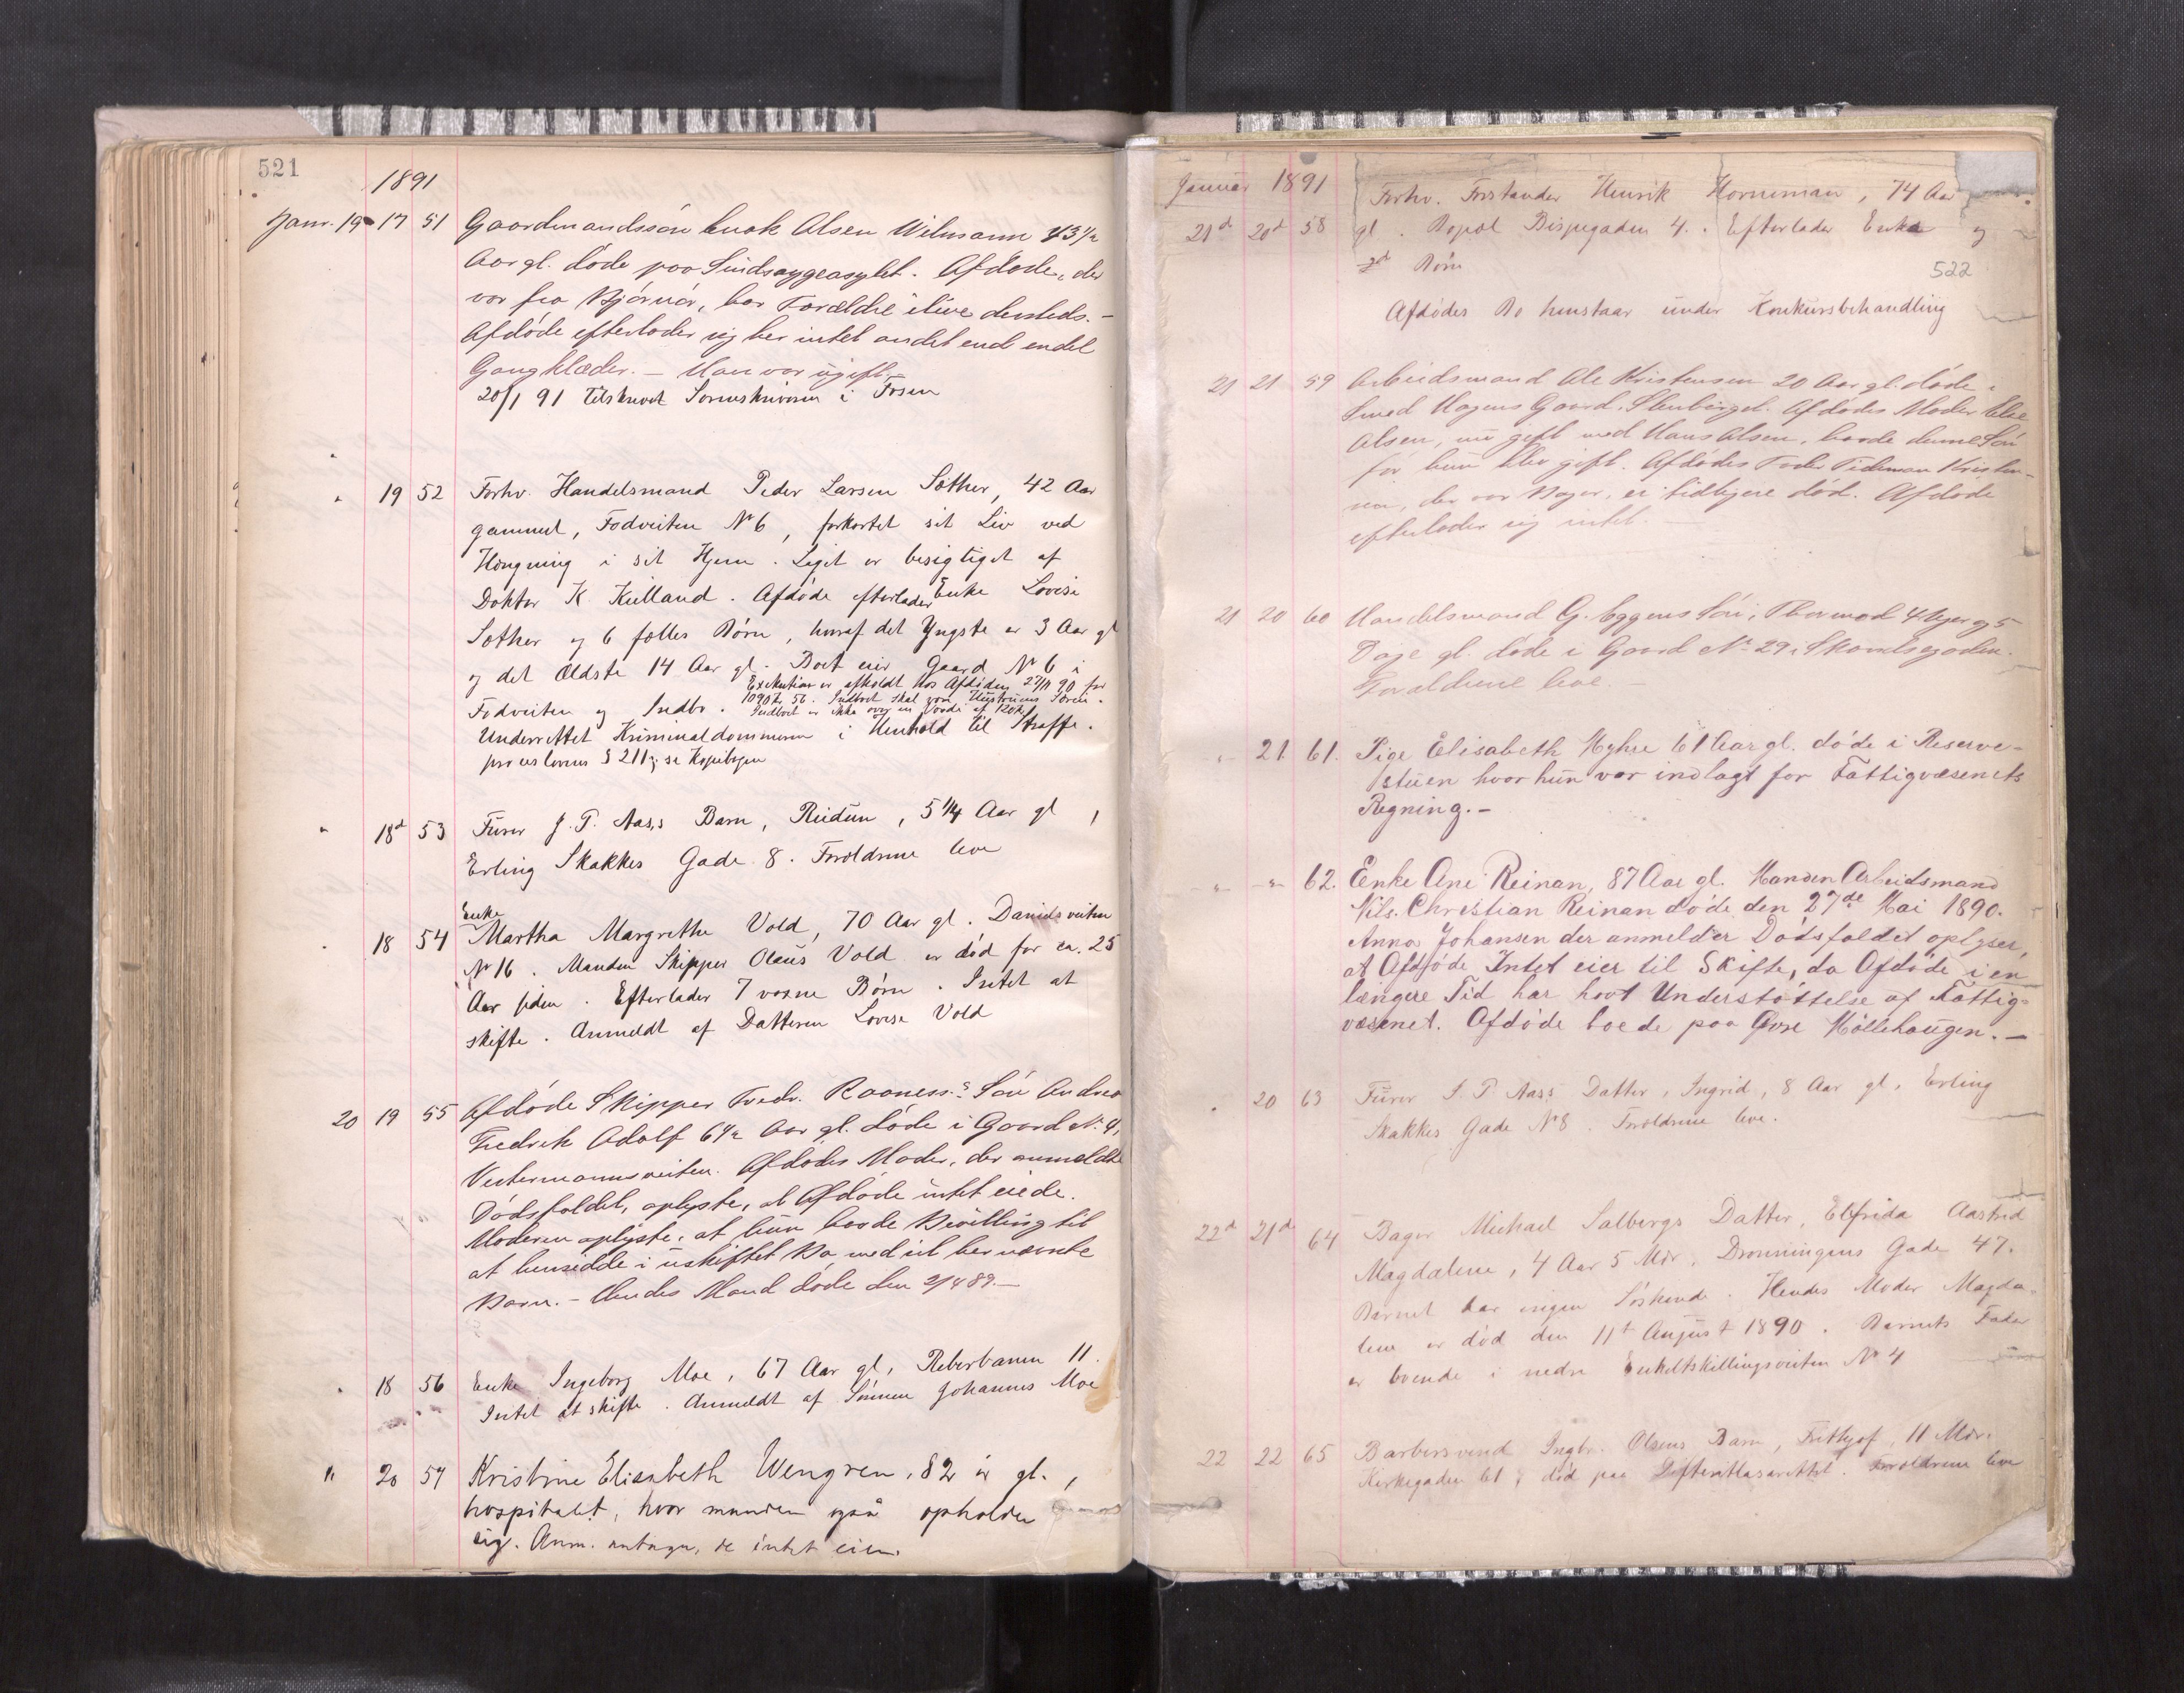 521
1891
Janr. 19 17 51 Gaardmandssøn Enok Olsen Wilmann 43 1/2
Aar gl. døde paa Sindsygeasylet. Afdøde, der
var fra Bjørnør, har Forældre ilive dersteds. -
Afdøde efterlader sig her intet andet end endel
Gangklæder. - Han var ugift. -
20/1 91 Tilskrevet Sorenskriveren i Fosen
" 19 52 Forhv. Handelsmand Peder Larsen Sæther, 42 Aar
gammel, Fodveiten No 6, forkortet sit Liv ved
Hængning i sit Hjem. Liget er besigtiget af
Doktor K. Kielland. Afdøde efterlader Enke Lovise
Sæther og 6 fælles Børn, hvoraf det Yngste er 3 Aar gl
og det Ældste 14 Aar gl. Boet eier Gaard No 6 i
Exekution er afholdt hos Afdøden 27/11 90 for
1090 Kr. 56. Indboet skal være Hustruens Særeie.
Fodveiten og Indbo. Indboet er ikke over en Værdi af 120 Kr
Underrettet Kriminaldommeren i Henhold til Straffe-
proceslovens § 211; se Kopibogen
" 18d 53 Furer J. P. Aas,s Barn, Reidun, 5 1/4 Aar gl,
Erling Skakkes Gade 8. Forældrene leve
Enke
" 18 54 Martha Margrethe Vold, 70 Aar gl. Danielsveiten
No 16. Manden Skipper Olaus Vold er død for ca. 25
Aar siden. Efterlader 7 voxne Børn. Intet at
skifte. Anmeldt af Datteren Lovise Vold
20 19 55 Afdøde Skipper Fredr. Raaness.s Søn Andreas
Fredrik Adolf 6 1/2 Aar gl. døde i Gaard No. 4,
Vestermannsveiten. Afdødes Moder, der anmeldte
Dødsfaldet, oplyste, at Afdøde intet eiede.
Moderen oplyste, at hun havde Bevilling til
at hensidde i uskiftet Bo med sit her nævnte
Barn. - Hendes Mand døde den 2/4 89. -
" 18 56 Enke Ingeborg Moe, 67 Aar gl, Reberbanen 11.
Intet at skifte. Anmeldt af Sønnen Johannes Moe
" 20 57 Kristine Elisabeth Wengren, 82 år gl.,
hospitalet, hvor manden også opholder
sig. Anm. antager, de intet eier.
Januar 1891 Forhv. Forstander Henrik Horneman, 74 Aar
21d 20d 58 gl. Bopæl Bispegaden 4. Efterlader Enke og
Børn
522
Afdødes Bo henstaar under Konkursbehandling
21 21 59 Arbeidsmand Ole Kristensen 20 Aar gl. døde i
Smed Hagens Gaard, Stenberget. Afdødes Moder Else
Olsen, nu gift med Hans Olsen, havde denne Søn
før hun blev gift. Afdødes Fader Tideman Kristen-
sen, der var Bager, er tidligere død. Afdøde
efterlader sig intet -
21 20 60 Handelsmand G. Eggens Søn, Thormod 4 Uger og 5
Dage gl. døde i Gaard No. 29, Strandgaden.
Forældrene leve -
" 21. 61. Pige Elisabeth Myhre 61 Aar gl. døde i Reserve-
stuen hvor hun var indlagt for Fattigvæsenets
Regning. -
-"- -"- 62. Enke Ane Reinan, 87 Aar gl. Manden Arbeidsmand
Nils Christian Reinan døde den 27de Mai 1890.
Anna Johansen der anmelder Dødsfaldet oplyser,
at Afdøde Intet eier til Skifte, da Afdøde i en
længere Tid har havt Understøttelse af Fattig-
væsenet. Afdøde boede paa Øvre Møllehaugen. -
" 20 63 Furer J. P. Aas,s Datter, Ingrid, 8 Aar gl, Erling
Skakkes Gade No 8. Forældrene leve.
22d 21d 64 Bager Michael Salbergs Datter, Elfrida Aastrid
Magdalene, 4 Aar 5 Mdr, Dronningens Gade 47.
Barnet har ingen Søskende. Hendes Moder Magda-
lene er død den 11t August 1890. Barnets Fader
er boende i nedre Enkeltskillingsveiten No 4
22 22 65 Barbersvend Ingbr. Olsens Barn, Frithjof, 11 Mdr.
Kirkegaden 61, død paa Difteritlasarettet. Forældrene leve